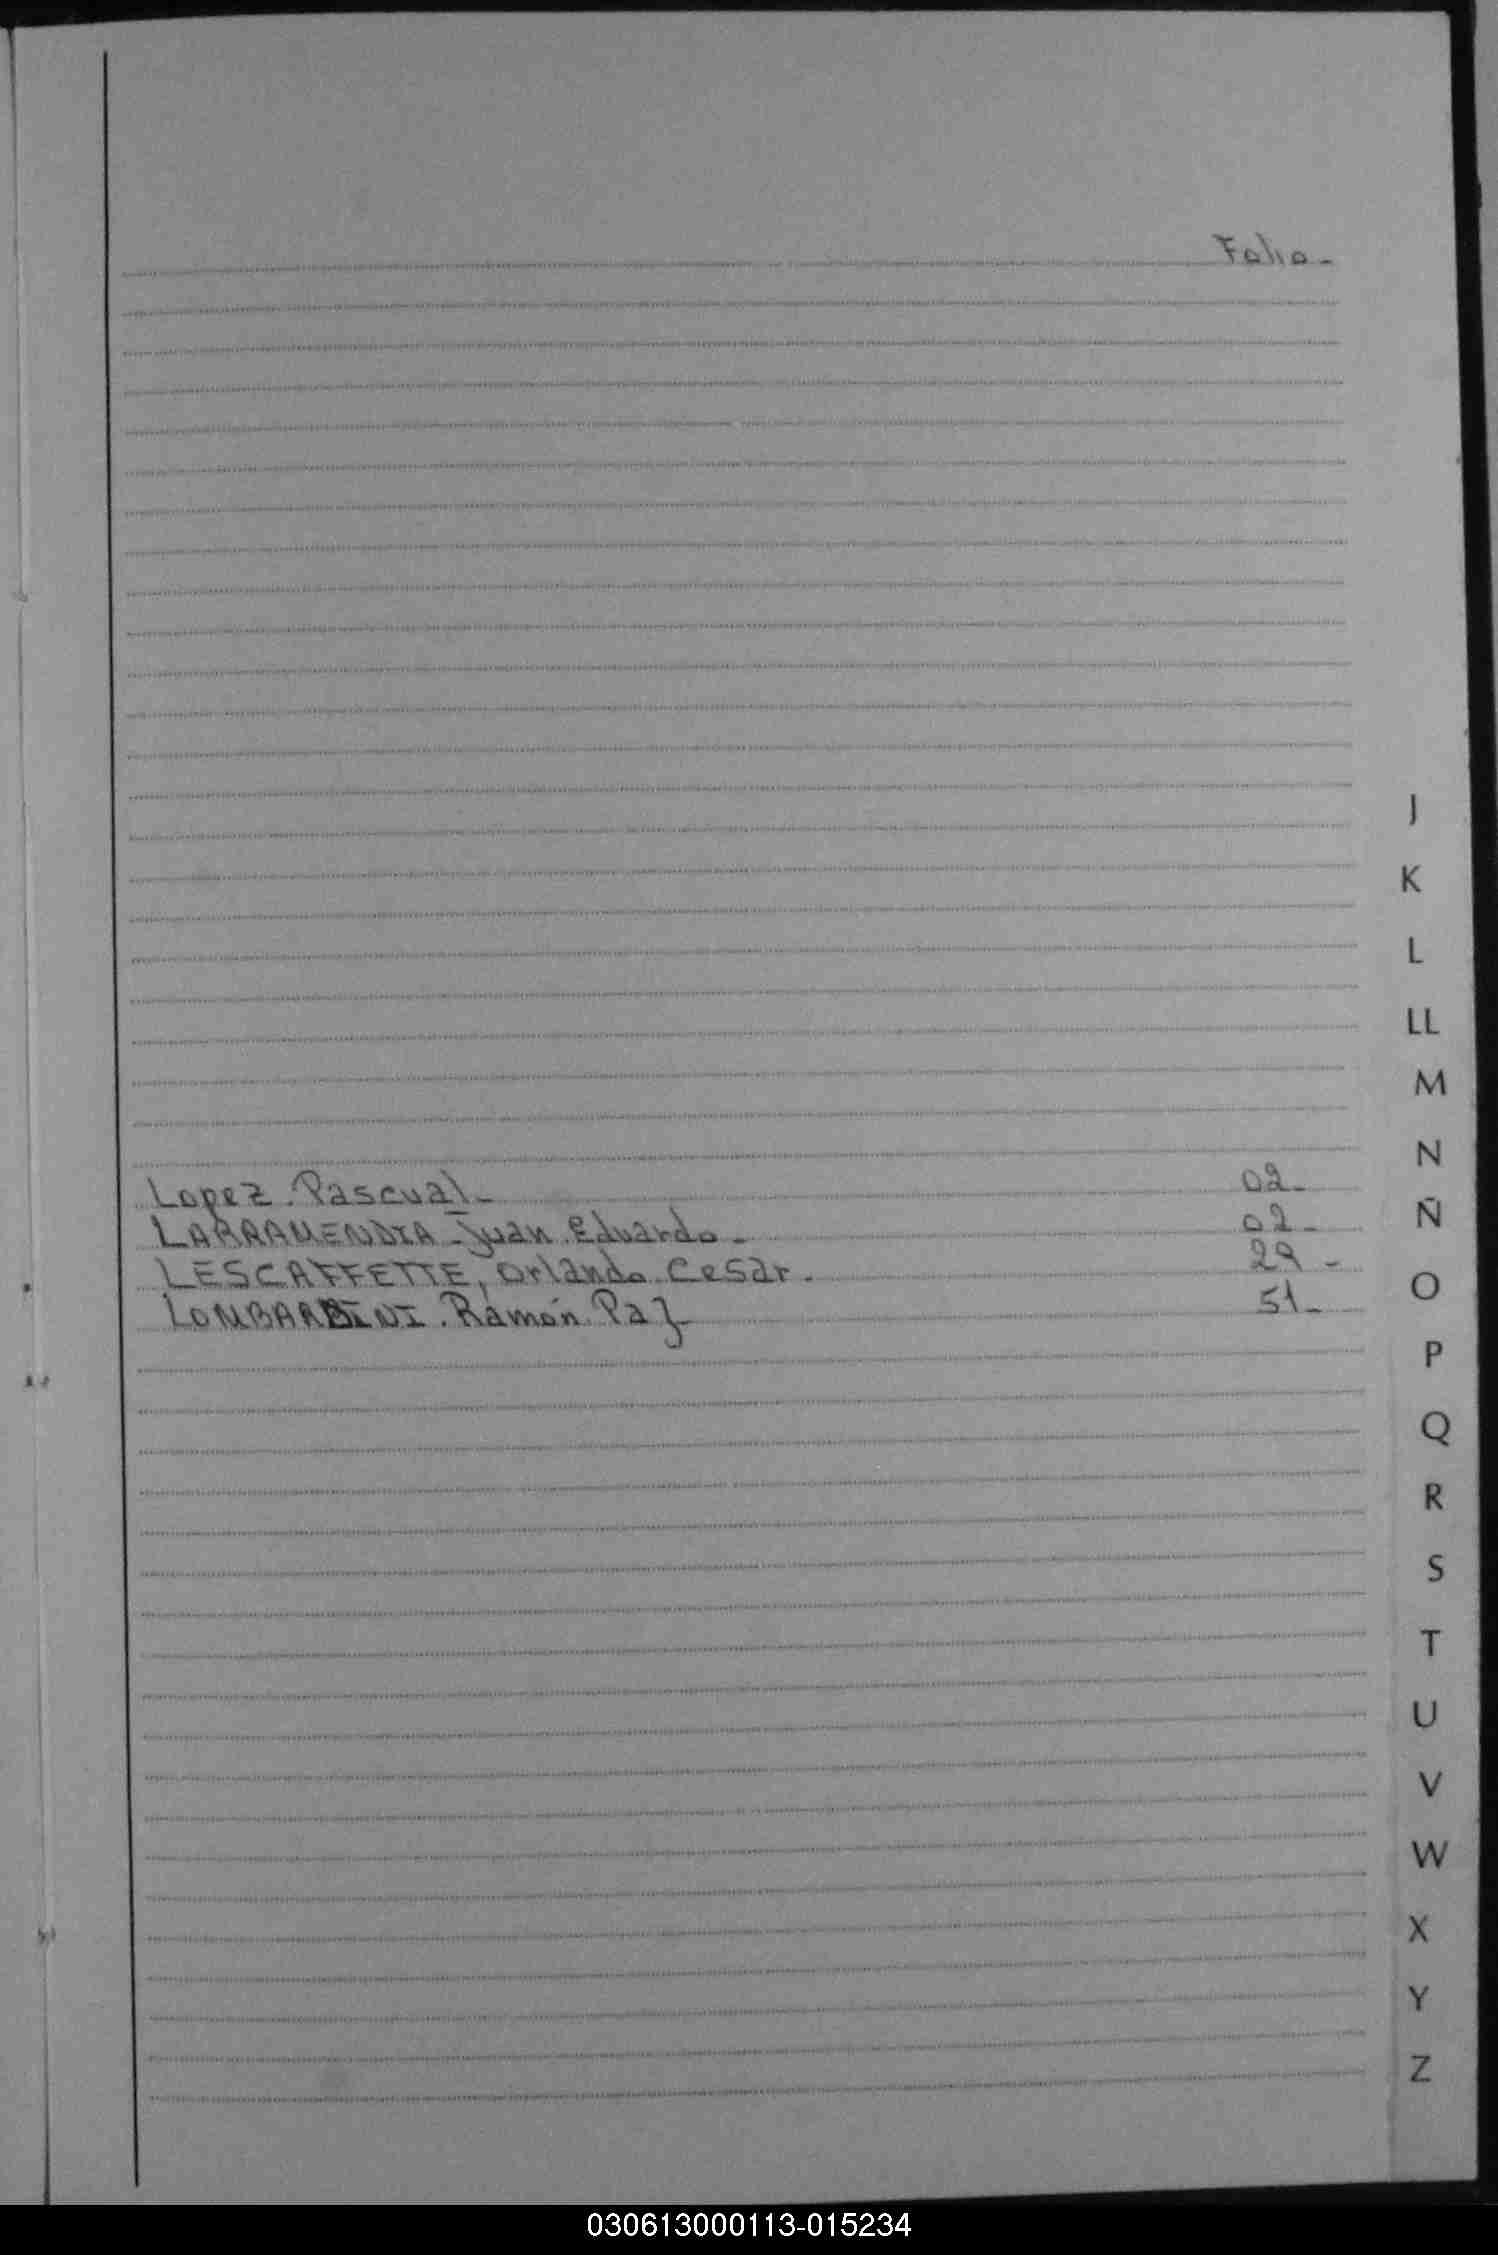 Folio-
J
K
L
LL
M
N
Lopez. Pascual- 02-
Ñ
LARRAMENDIA - Juan Eduardo- 02-
LESCAFFETTE, Orlando Cesar. 29-
O
LOMBARDINI. Ramón Paz 51-
P
Q
R
S
T
U
V
W
X
Y
Z
030613000113-015234